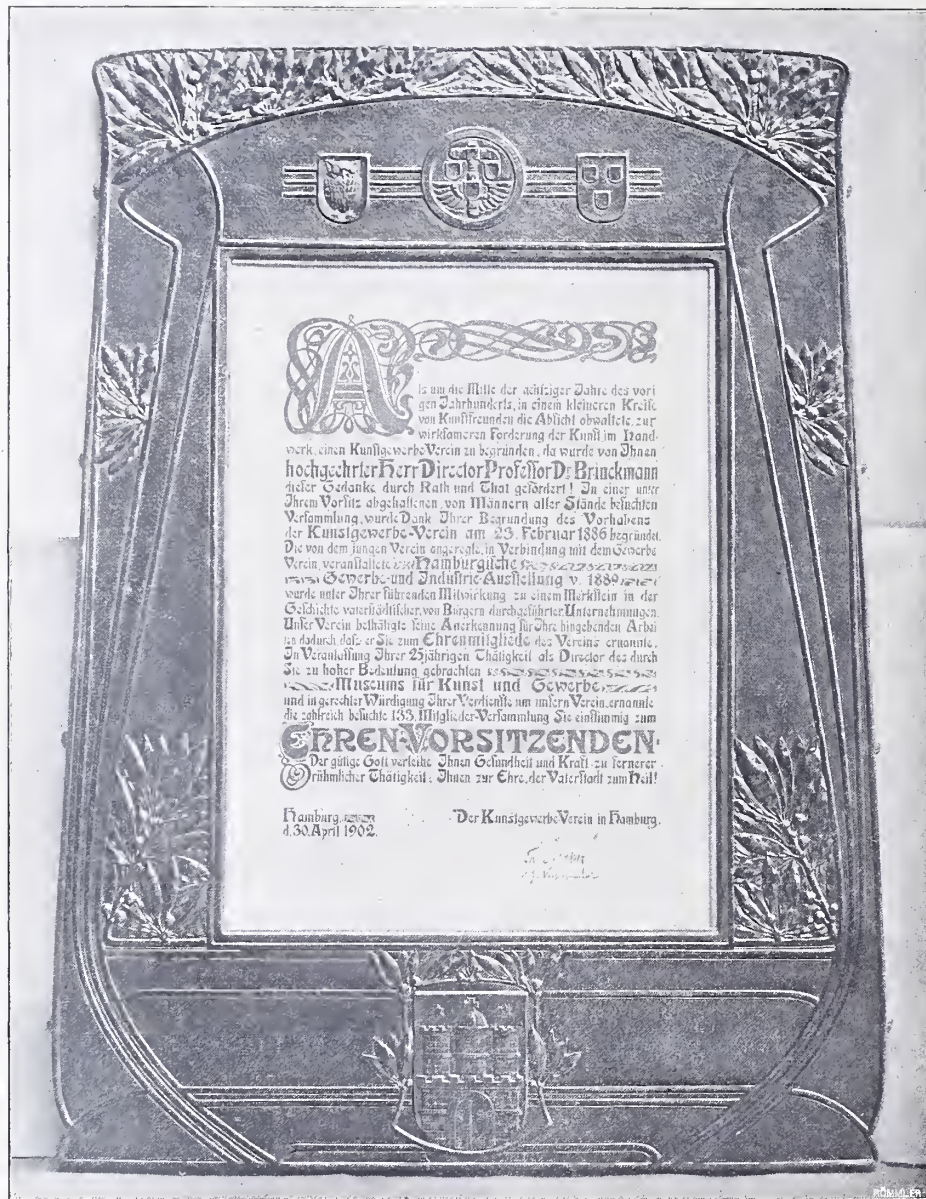 Als um die Mitte der achtziger Jahre des vori
gen Jahrhunderts, in einem kleineren Kreise
von Kunstfreunden die Absicht obwaltete, zur
wirksameren Förderung der Kunst im Hand-
werk, einen Kunstgewerbe Verein zu begründen, da wurde von Ihnen
hochgeehrter Herr Director Professor Dr Brinckmann
dieser Gedanke durch Rath und That gefördert! In einer unter
Ihrem Vorsitz abgehaltenen, von Männern aller Stände besuchten
Versammlung, wurde Dank Ihrer Begründung des Vorhabens
der Kunstgewerbe-Verein am 23. Februar 1886 begründet.
Die von dem jungen Verein angeregte, in Verbindung mit dem Gewerbe
Verein, veranstaltete Hamburgische
Gewerbe- und Industrie-Ausstellung v. 1889
wurde unter Ihrer führenden Mitwirkung zu einem Markstein in der
Geschichte vaterstädtischer, von Bürgern durchgeführter Unternehmungen.
Unser Verein bethätigte seine Anerkennung für Ihre hingebenden Arbei
ten dadurch, daß er Sie zum Ehrenmitgliede des Vereins ernannte.
In Veranlassung Ihrer 25jährigen Thätigkeit als Director des durch
Sie zu hoher Bedeutung gebrachten
Museums für Kunst und Gewerbe
und in gerechter Würdigung Ihrer Verdienste um unsern Verein, ernannte
die zahlreich besuchte 133. Mitglieder-Versammlung Sie einstimmig zum
EHREN-VORSITZENDEN.
Der gütige Gott verleihe Ihnen Gesundheit und Kraft zu fernerer
rühmlicher Thätigkeit; Ihnen zur Ehre, der Vaterstadt zum Heil!
Hamburg,
d. 30. April 1902.
Der Kunstgewerbe Verein in Hamburg.
RÖMMLER